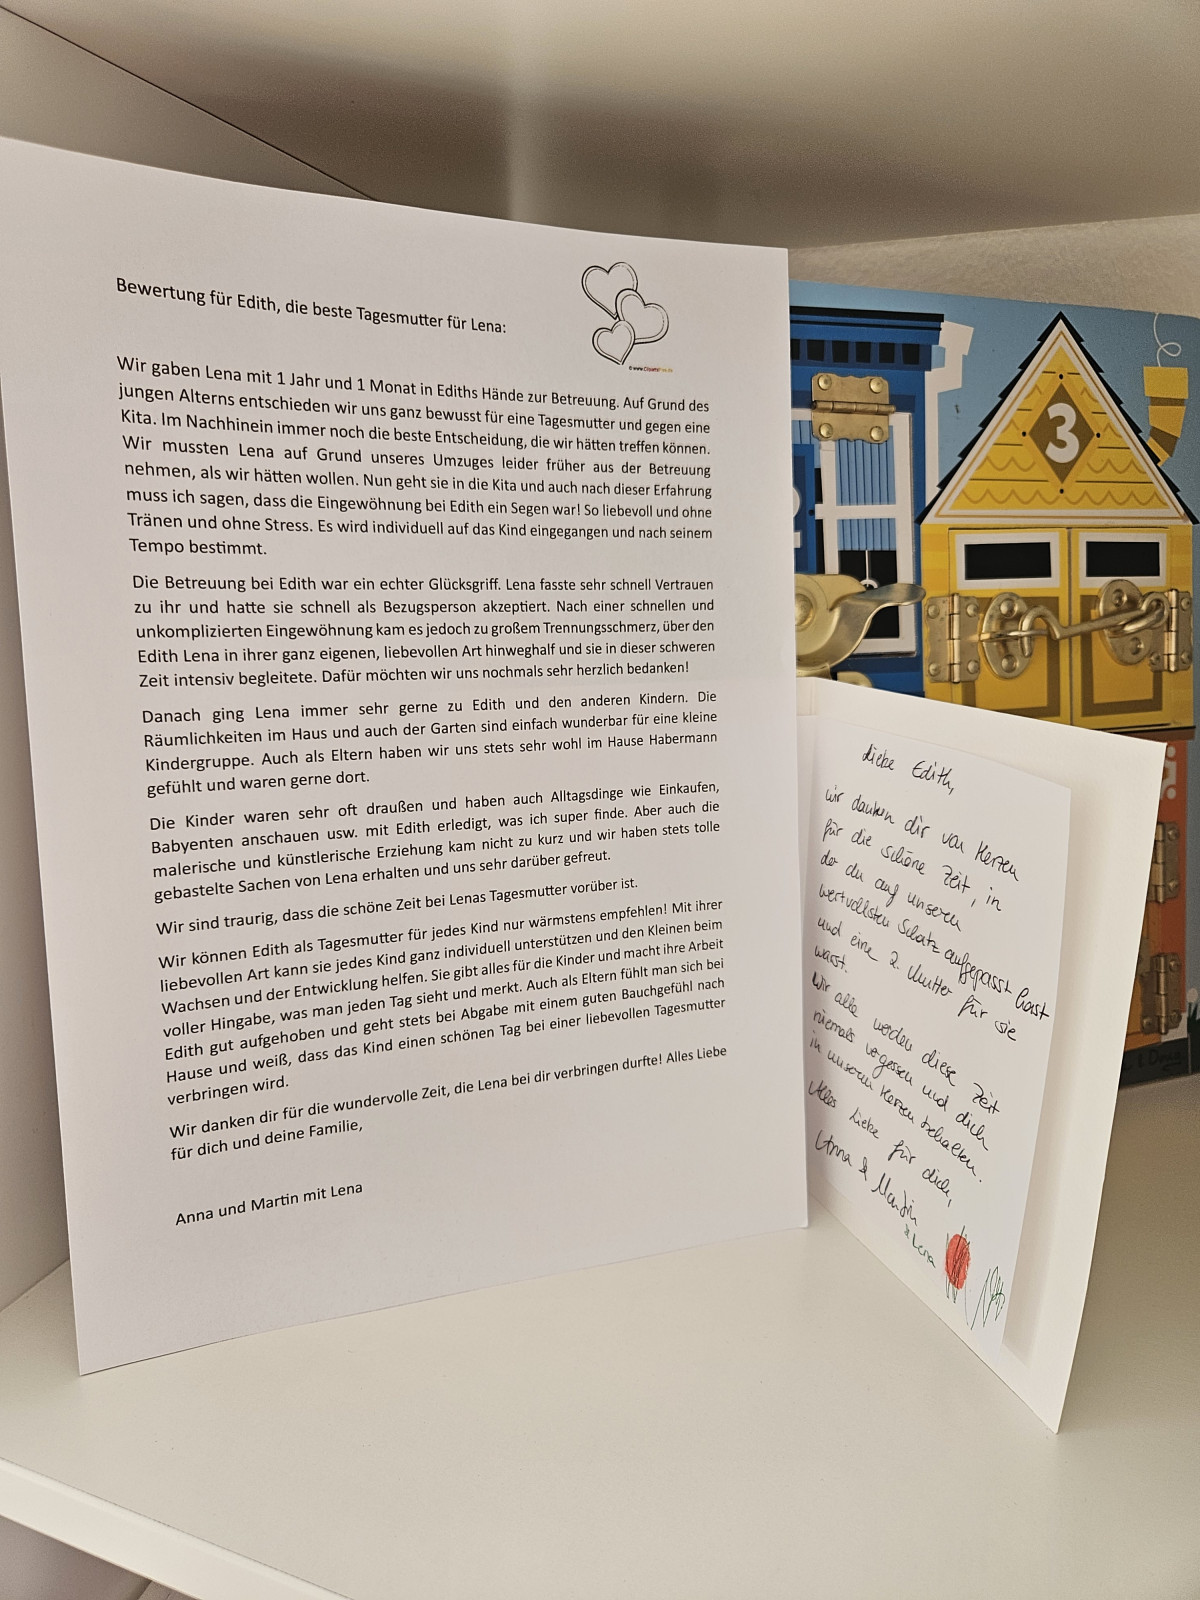 Bewertung für Edith, die beste Tagesmutter für Lena:
Wir gaben Lena mit 1 Jahr und 1 Monat in Ediths Hände zur Betreuung. Auf Grund des
jungen Alterns entschieden wir uns ganz bewusst für eine Tagesmutter und gegen eine
Kita. Im Nachhinein immer noch die beste Entscheidung, die wir hätten treffen können.
Wir mussten Lena auf Grund unseres Umzuges leider früher aus der Betreuung
nehmen, als wir hätten wollen. Nun geht sie in die Kita und auch nach dieser Erfahrung
muss ich sagen, dass die Eingewöhnung bei Edith ein Segen war! So liebevoll und ohne
Tränen und ohne Stress. Es wird individuell auf das Kind eingegangen und nach seinem
Tempo bestimmt.
Die Betreuung bei Edith war ein echter Glücksgriff. Lena fasste sehr schnell Vertrauen
zu ihr und hatte sie schnell als Bezugsperson akzeptiert. Nach einer schnellen und
unkomplizierten Eingewöhnung kam es jedoch zu großem Trennungsschmerz, über den
Edith Lena in ihrer ganz eigenen, liebevollen Art hinweghalf und sie in dieser schweren
Zeit intensiv begleitete. Dafür möchten wir uns nochmals sehr herzlich bedanken!
Danach ging Lena immer sehr gerne zu Edith und den anderen Kindern. Die
Räumlichkeiten im Haus und auch der Garten sind einfach wunderbar für eine kleine
Kindergruppe. Auch als Eltern haben wir uns stets sehr wohl im Hause Habermann
gefühlt und waren gerne dort.
Die Kinder waren sehr oft draußen und haben auch Alltagsdinge wie Einkaufen,
Babyenten anschauen usw. mit Edith erledigt, was ich super finde. Aber auch die
malerische und künstlerische Erziehung kam nicht zu kurz und wir haben stets tolle
gebastelte Sachen von Lena erhalten und uns sehr darüber gefreut.
Wir sind traurig, dass die schöne Zeit bei Lenas Tagesmutter vorüber ist.
Wir können Edith als Tagesmutter für jedes Kind nur wärmstens empfehlen! Mit ihrer
liebevollen Art kann sie jedes Kind ganz individuell unterstützen und den Kleinen beim
Wachsen und der Entwicklung helfen. Sie gibt alles für die Kinder und macht ihre Arbeit
voller Hingabe, was man jeden Tag sieht und merkt. Auch als Eltern fühlt man sich bei
Edith gut aufgehoben und geht stets bei Abgabe mit einem guten Bauchgefühl nach
Hause und weiß, dass das Kind einen schönen Tag bei einer liebevollen Tagesmutter
verbringen wird.
Wir danken dir für die wundervolle Zeit, die Lena bei dir verbringen durfte! Alles Liebe
für dich und deine Familie,
Anna und Martin mit Lena
3
Liebe Edith,
wir danken dir von Herzen
für die schöne Zeit, in
der du auf unseren
wertvollsten Schatz aufgepasst hast
und eine 2. Mutter für sie
warst.
Wir alle werden diese Zeit
niemals vergessen und dich
in unseren Herzen behalten.
Alles Liebe für dich,
Anna & Martin
& Lena